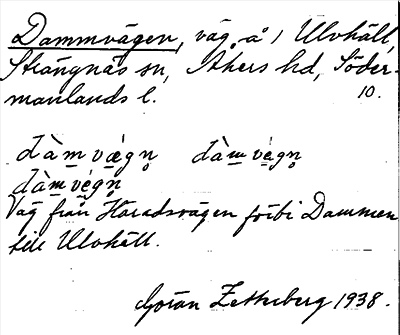 Dammvägen, väg å 1 Ulvhäll,
Strängnäs sn, Åkers hd, Söder-
manlands l. 10.
dàm væ̀gn̥ dàm vègn̥
dàm vègn̥
Väg från Haradsvägen förbi Dammen
till Ulvhäll.
Göran Zetterberg 1938.